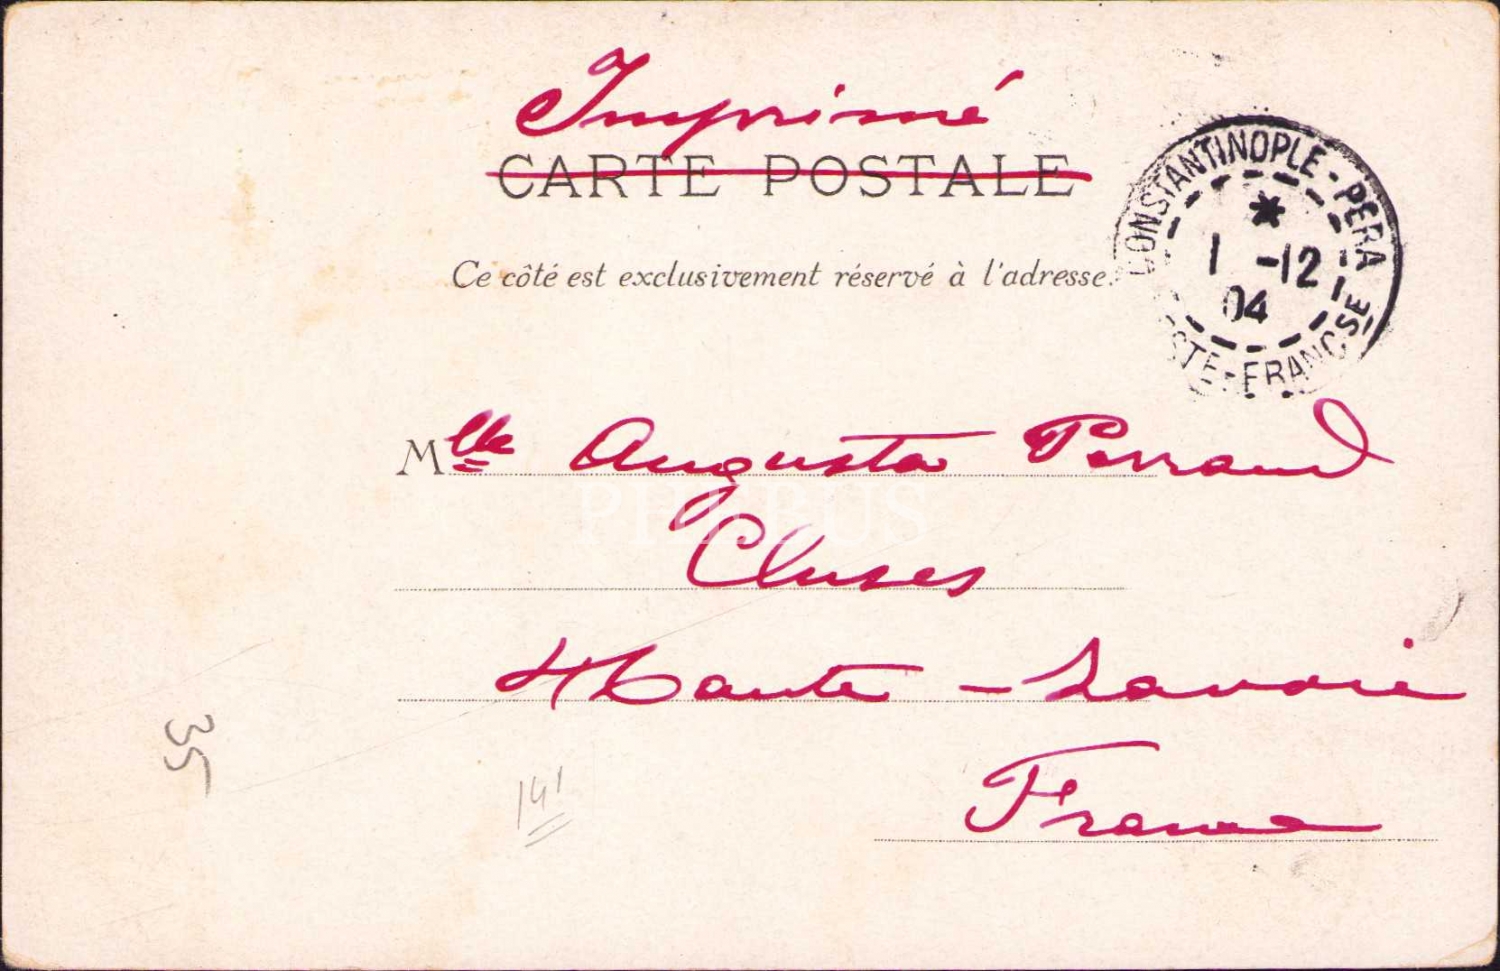 Imprimé
CARTE POSTALE
CONSTANTINOPLE - PERA
*
1 -12
04
STE - FRANÇSE
Ce côté est exclusivement réservé à l'adresse.
Mlle Augusta Perraud
PHEBUS
Cluses
Haute - Savoie
France
35
141